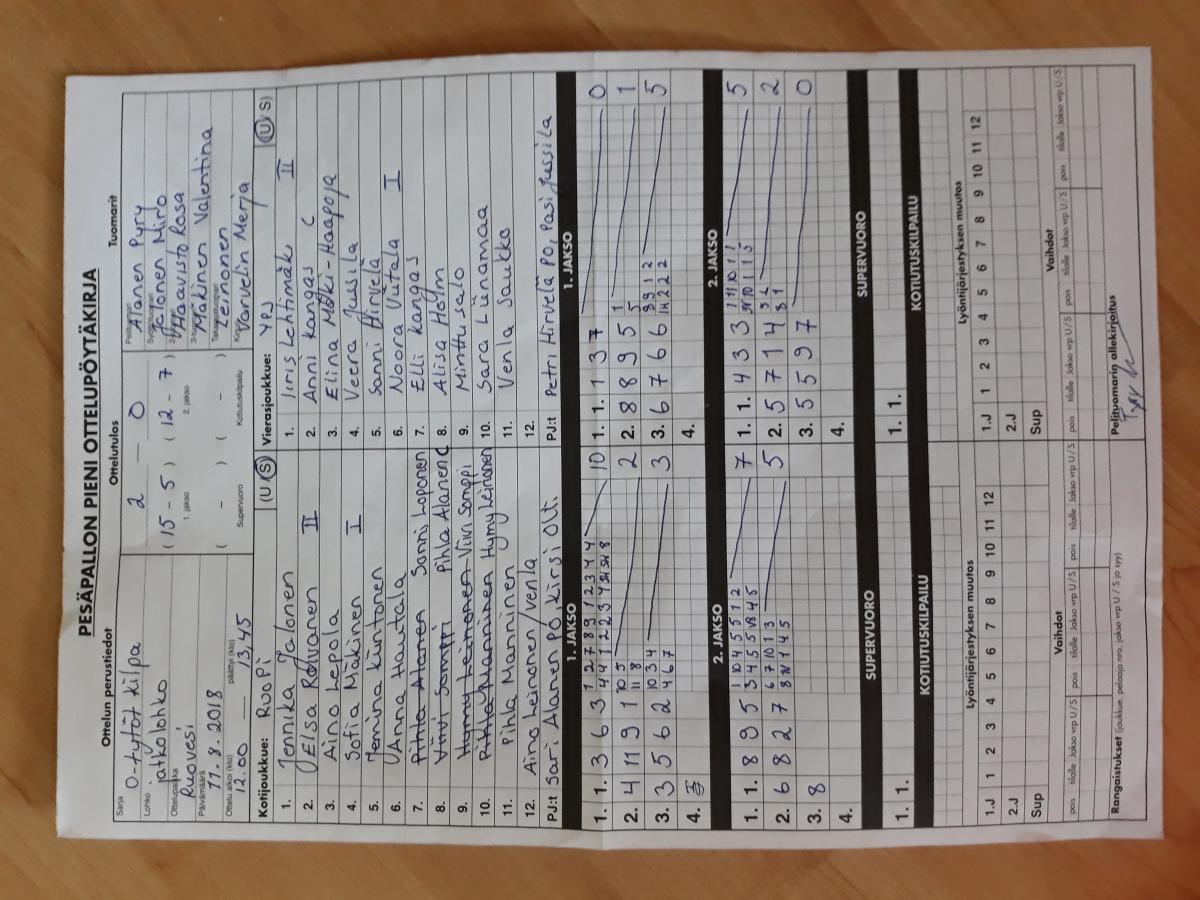 PESÄPALLON PIENI OTTELUPÖYTÄKIRJA
Ottelun perustiedot
Ottelutulos
Tuomarit
Sarja D-tytöt kilpa
Lohko jatkolohko
Ottelupaikka Ruovesi
Päivämäärä 11.8.2018
Ottelu alkoi (klo) 12.00 — päättyi (klo) 13,45
2 — 0
(15 - 5) (12 - 7)
1. jakso 2. jakso
( - ) ( - )
Supervuoro Kotiutuskilpailu
Pelituomari Alanen Pyry
Syöttötuomari Jalonen Miro
2-tuomari Haavisto Rosa
3-tuomari Mäkinen Valentina
Takatuomari Leinonen
Kirjuri Varvelin Merja
Kotijoukkue: RuoPi (U/S)
1. Jennika Jalonen
2. Elsa Rajvanen II
3. Aino Lepola
4. Sofia Mäkinen I
5. Jemina Kintonen
6. Anna Hautala
7. Pihla Alanen Sonni Loponen
8. Viivi Somppi Pihla Alanen C
9. Humy Leinonen Viivi Somppi
10. Pihla Manninen Humy Leinonen
11. Pihla Manninen
12. Aino Leinonen/Venla
PJ:t Sari Alanen PO, Kirsi Olti.
Vierasjoukkue: YPJ (U/S)
1. Iiris Lehtimäki II
2. Anni Kangas C
3. Elina Mäki-Haapoja
4. Veera Jussila
5. Sanni Hirvelä
6. Noora Viitala I
7. Elli Kangas
8. Alisa Holm
9. Minttu Salo
10. Sara Liinamaa
11. Venla Saukko
12.
PJ:t Petri Hirvelä PO, Pasi Jussila
1. JAKSO
1. 1. 3 6 3 1 2 7 8 9 1 2 3 4 4 10
2. 4 11 9 1 10 5 2
3. 3 5 6 2 10 3 4 3
4.
1. JAKSO
1. 1. 1 3 7 0
2. 8 8 9 5 1 1
3. 6 7 6 6 8 9 1 2 5
4.
2. JAKSO
1. 1. 8 9 5 1 10 4 5 5 1 2 7
2. 6 8 2 7 6 7 10 1 3 5
3. 8
4.
2. JAKSO
1. 1. 4 3 3 1 11 10 1 1 5
2. 5 7 1 4 2
3. 5 5 9 7 0
4.
SUPERVUORO
1. 1.
SUPERVUORO
1. 1.
KOTIUTUSKILPAILU
KOTIUTUSKILPAILU
Lyöntijärjestyksen muutos
1.J 1 2 3 4 5 6 7 8 9 10 11 12
2.J
Sup
Lyöntijärjestyksen muutos
1.J 1 2 3 4 5 6 7 8 9 10 11 12
2.J
Sup
Vaihdot
pois tilalle Jakso vrp U/S pois tilalle Jakso vrp U/S pois tilalle Jakso vrp U/S
Vaihdot
pois tilalle Jakso vrp U/S pois tilalle Jakso vrp U/S pois tilalle Jakso vrp U/S
Rangaistukset (joukkue, pelaaja nro, jakso vrp U / S ja syy)
Pelituomarin allekirjoitus